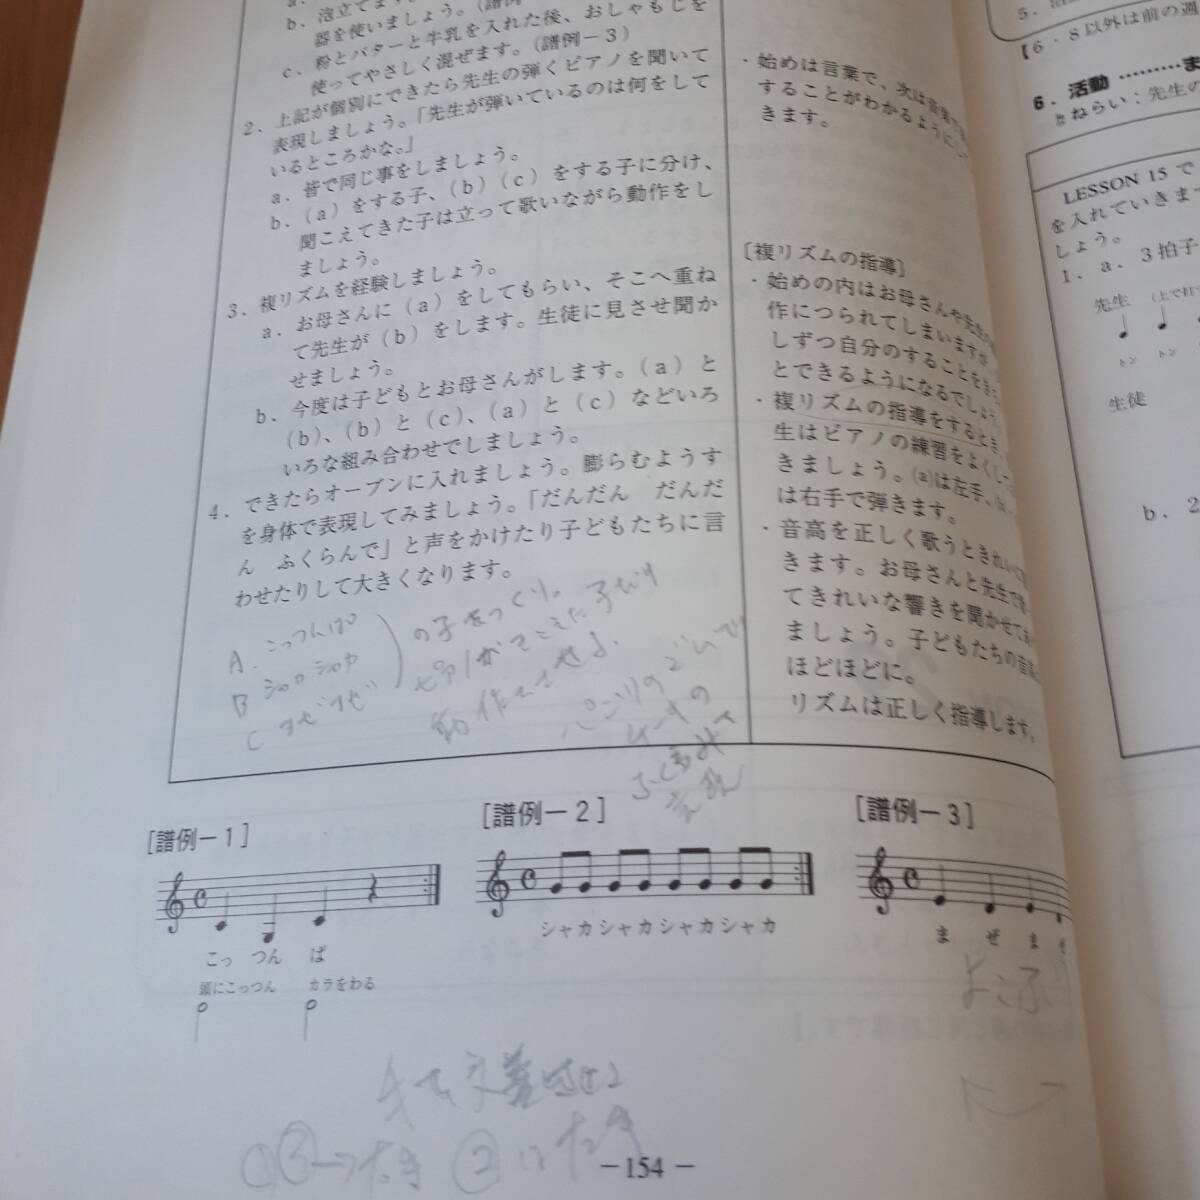 b．泡立てま
器を使いましょう。（譜例
c．粉とバターと牛乳を入れた後、おしゃもじを
使ってやさしく混ぜます。（譜例－3）
2．上記が個別にできたら先生の弾くピアノを聞いて
表現しましょう。「先生が弾いているのは何をして
いるところかな。」
a．皆で同じ事をしましょう。
b．（a）をする子、（b）（c）をする子に分け、
聞こえてきた子は立って歌いながら動作をし
ましょう。
3．複リズムを経験しましょう。
a．お母さんに（a）をしてもらい、そこへ重ね
て先生が（b）をします。生徒に見させ聞か
せましょう。
b．今度は子どもとお母さんがします。（a）と
（b）、（b）と（c）、（a）と（c）などいろ
いろな組み合わせでしましょう。
4．できたらオーブンに入れましょう。膨らむようす
を身体で表現してみましょう。「だんだん　だんだ
ん　ふくらんで」と声をかけたり子どもたちに言
わせたりして大きくなります。
A．こっつんぱ
B シャカ シャカ
C マゼマゼ
・始めは言葉で、次は音
することがわかるように
きます。
［複リズムの指導］
・始めの内はお母さんや先生の
作につられてしまいますが
しずつ自分のすることを
とできるようになるでしょう
・複リズムの指導をするとき、
生はピアノの練習をよくし
きましょう。(a)は左手、
は右手で弾きます。
・音高を正しく歌うときれいに
きます。お母さんと先生で
てきれいな響きを聞かせて
ましょう。子どもたちの音
ほどほどに。
リズムは正しく指導します。
［譜例－1］
こっ つん ぱ
頭にこっつん カラをわる
［譜例－2］
シャカシャカシャカシャカ
［譜例－3］
ま ぜ ま ぜ
よこふり
－154－
5．
【6・8以外は前の週
6．活動 ………ま
ねらい：先生の
LESSON 15で
を入れていきま
しょう。
1．a．3拍子
先生 （上で打
トン トン
生徒
b．2